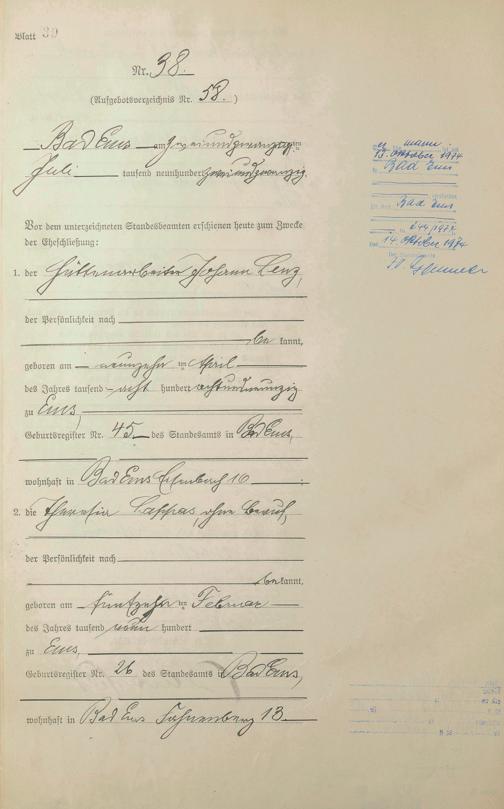 Blatt 39
Nr. 38.
(Aufgebotsverzeichnis Nr. 58.)
Bad Ems am zweiundzwanzigsten
Juli tausend neunhundert zweiundzwanzig.
Vor dem unterzeichneten Standesbeamten erschienen heute zum Zwecke
der Eheschließung:
1. der Hüttenarbeiter Johann Lenz,
der Persönlichkeit nach
be kannt,
geboren am neunzehn ten April
des Jahres tausend acht hundert achtundneunzig
zu Ems,
Geburtsregister Nr. 45 des Standesamts in Bad Ems,
wohnhaft in Bad Ems 16
2. die Theresia Cappas, ohne Beruf,
der Persönlichkeit nach
be kannt,
geboren am fünfzehn ten Februar
des Jahres tausend neun hundert
zu Ems,
Geburtsregister Nr. 26 des Standesamts in Bad Ems,
wohnhaft in Bad Ems Fahnenberg 13
mann
13. Oktober 1974
Bad Ems
Bad Ems
244/1974
14. Oktober 1974